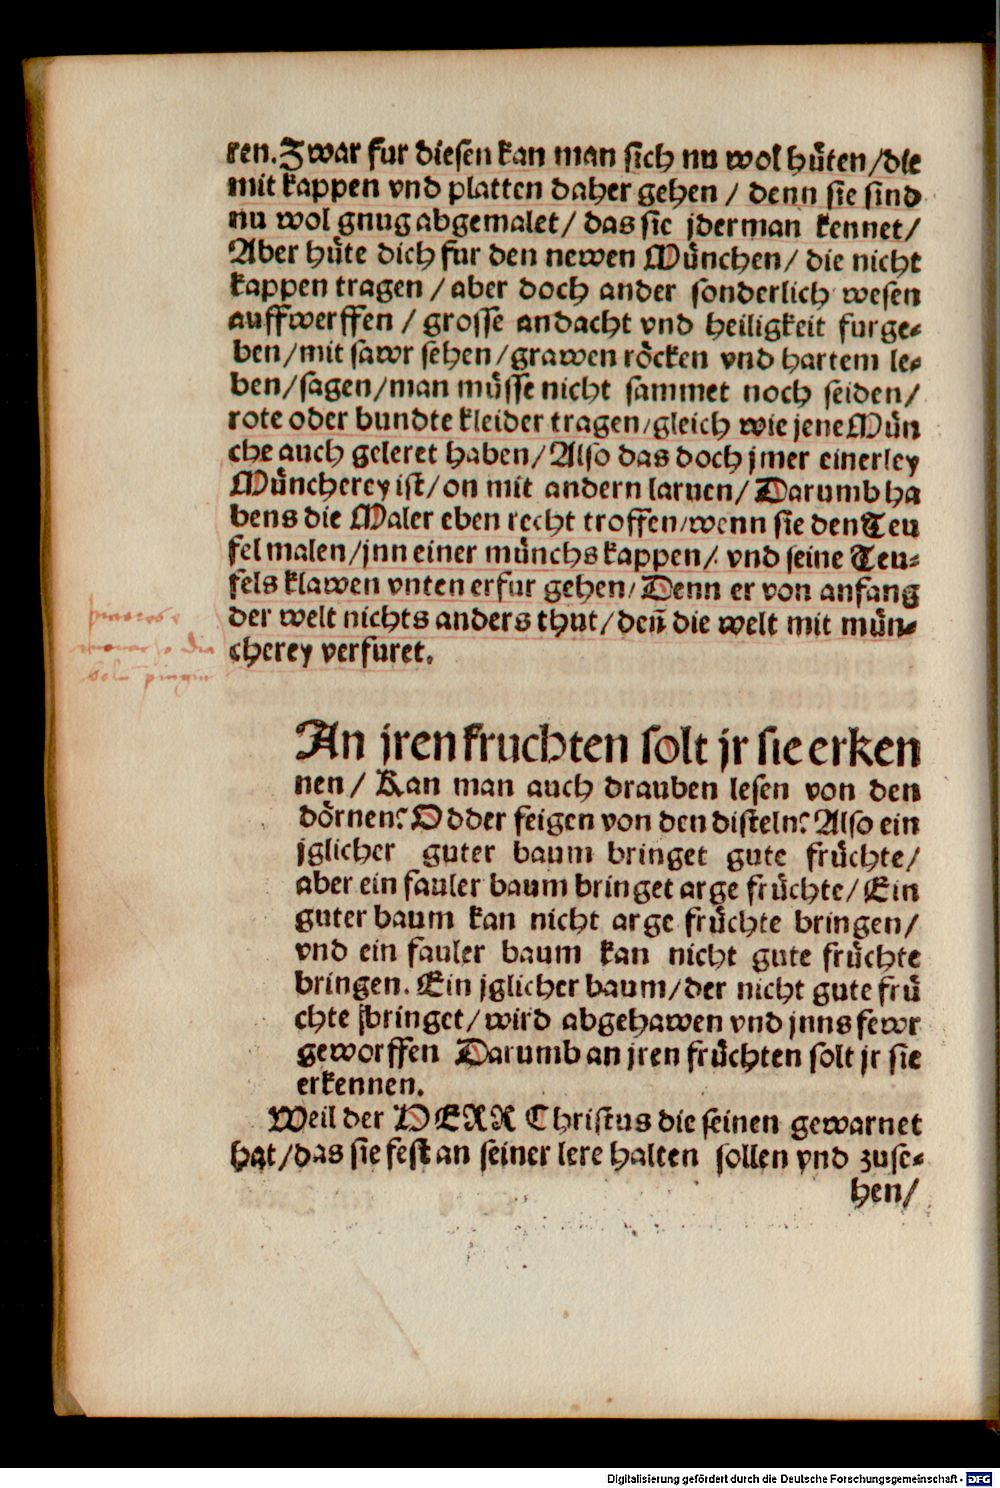 ren. Zwar fur diesen kan man sich nu wol hüten/die
mit kappen vnd platten daher gehen / denn sie sind
nu wol gnug abgemalet/ das sie jderman kennet/
Aber hüte dich fur den newen München/ die nicht
kappen tragen / aber doch ander sonderlich wesen
auffwerffen / grosse andacht vnd heiligkeit furge-
ben/mit sawr sehen/grawen röcken vnd hartem le-
ben/sagen/man müsse nicht sammet noch seiden/
rote oder bundte kleider tragen/gleich wie jene Mün
che auch geleret haben/Also das doch jmer einerley
Müncherey ist/on mit andern laruen/Darumb ha
bens die Maler eben recht troffen/wenn sie den Teu
fel malen/jnn einer münchs kappen/ vnd seine Teu-
fels klawen vnten erfur gehen/Denn er von anfang
der welt nichts anders thut/deñ die welt mit mün-
cherey verfuret.
An jren fruchten solt jr sie erken
nen/ Kan man auch drauben lesen von den
dörnen? Odder feigen von den disteln? Also ein
jglicher guter baum bringet gute früchte/
aber ein fauler baum bringet arge früchte/Ein
guter baum kan nicht arge früchte bringen/
vnd ein fauler baum kan nicht gute früchte
bringen. Ein jglicher baum/der nicht gute frü
chte bringet/wird abgehawen vnd jnns fewr
geworffen Darumb an jren früchten solt jr sie
erkennen.
Weil der HERR Christus die seinen gewarnet
hat/das sie fest an seiner lere halten sollen vnd zuse-
hen/
Digitalisierung gefördert durch die Deutsche Forschungsgemeinschaft - DFG